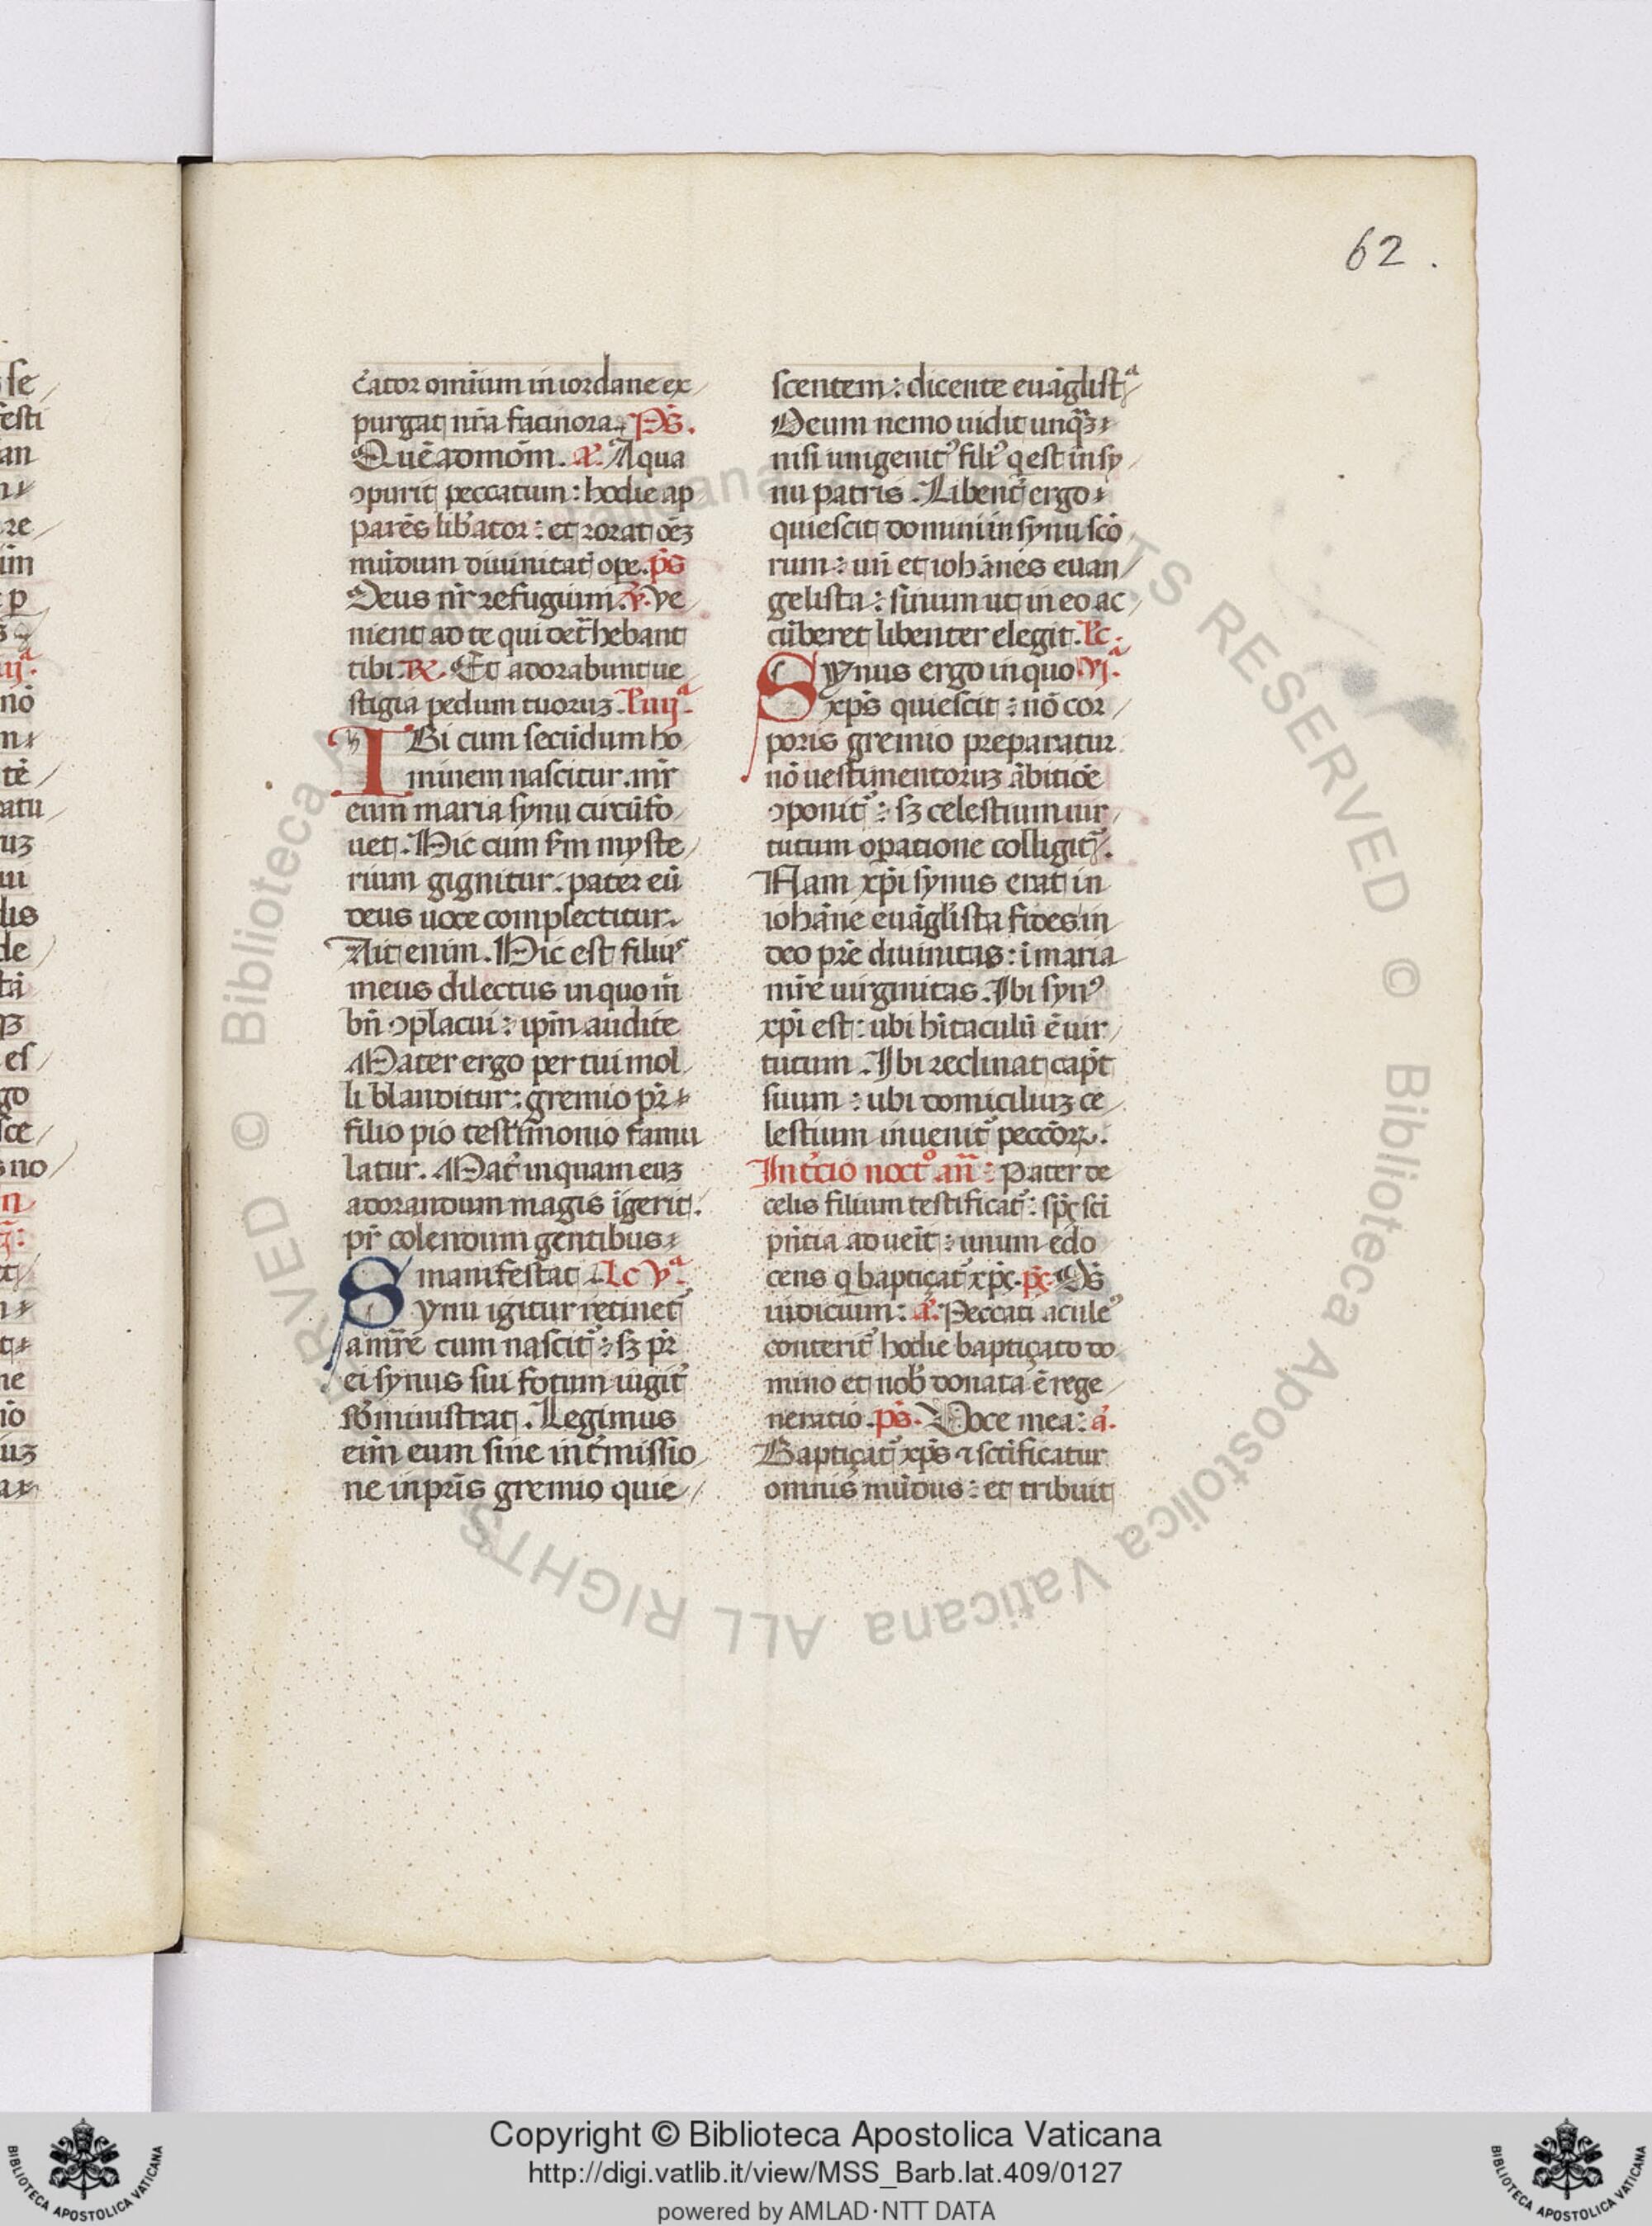 62.
c̄ator omīum in iordane ex/
purgat nr̄a facinora. Ps̄.
Quēadmom̄. A̅. Aqua
ꝯpurit peccatum: hodie ap
parēs lib̄ator: et rorat oēz
mūdum diuinitat̄ ope. ps̄
Deus nr̄ refugium. v. ve
nient ad te qui det̄hebant
tibi. R. Et adorabunt ue
stigia pedum tuoruz. l. iiijª.
IBi cum secūdum ho
minem nascitur. mr̄
eum maria synu circūfo
uet. Hic cum sm̄ myste/
rium gignitur. pater eū
deus uoce complectitur.
Ait enim. Hic est filiuˢ
meus dilectus in quo m̄
bn̄ ꝯplacui: ip̄m audite
Mater ergo per tui mol
li blanditur: gremio pr̄
filio pio testīmonio famu
latur. Mat̄ inquam euz
adorandum magis īgerit.
pr̄ colendum gentibus
manifestat. Lc̄ vª.
Synu igitur retinet᷑
a mr̄e cum nascit᷑: sz pr̄
ei synus sui fotum uigit᷑
sb̄ministrat. Legimus
eim̄ eum sine int̄missio
ne in pr̄is gremio quie/
scentem: dicente euāglistª
Deum nemo uidit unqꝫ
nisi unigenitꝰ filiꝰ q est in sy/
nu patris. Libent̄ ergo
quiescit domini in synu scō
rum: uñ et iohānes euan/
gelista: sinum ut in eo ac/
cūberet libenter elegit. Lc̄.
Synus ergo in quo vjª.
xp̄s quiescit: nō cor/
poris gremio preparatur
nō uestimentoruz ābitiōe
ꝯponit᷑: sz celestium uir/
tutum opatione colligit᷑.
Nam xp̄i synus erat in
iohāne euāgl̄ista fides. in
deo pr̄e diuinitas: ī maria
mr̄e uirginitas. Ibi synꝰ
xp̄i est: ubi hītaculū ē uir/
tutum. Ibi reclinat cap̄t
suum: ubi domiciliuz ce
lestium inuenit᷑ peccōꝝ.
In t̄cio noctᵒ. an̄: Pater de
celis filium testificat᷑: sp̄c sc̄i
pn̄tia adueit: unum edo
cens q baptiçat᷑ xp̄c. pc̄. Ds̄
iudicium: a̅. Peccati aculeꝰ
conterit᷑ hodie baptiçato do
mino et nob̄ donata ē rege/
neratio. ps̄. Voce mea: a̅.
Baptiçat᷑ xp̄s ⁊ sctīficatur
omnis mūdus: et tribuit
Copyright © Biblioteca Apostolica Vaticana
http://digi.vatlib.it/view/MSS_Barb.lat.409/0127
powered by AMLAD·NTT DATA